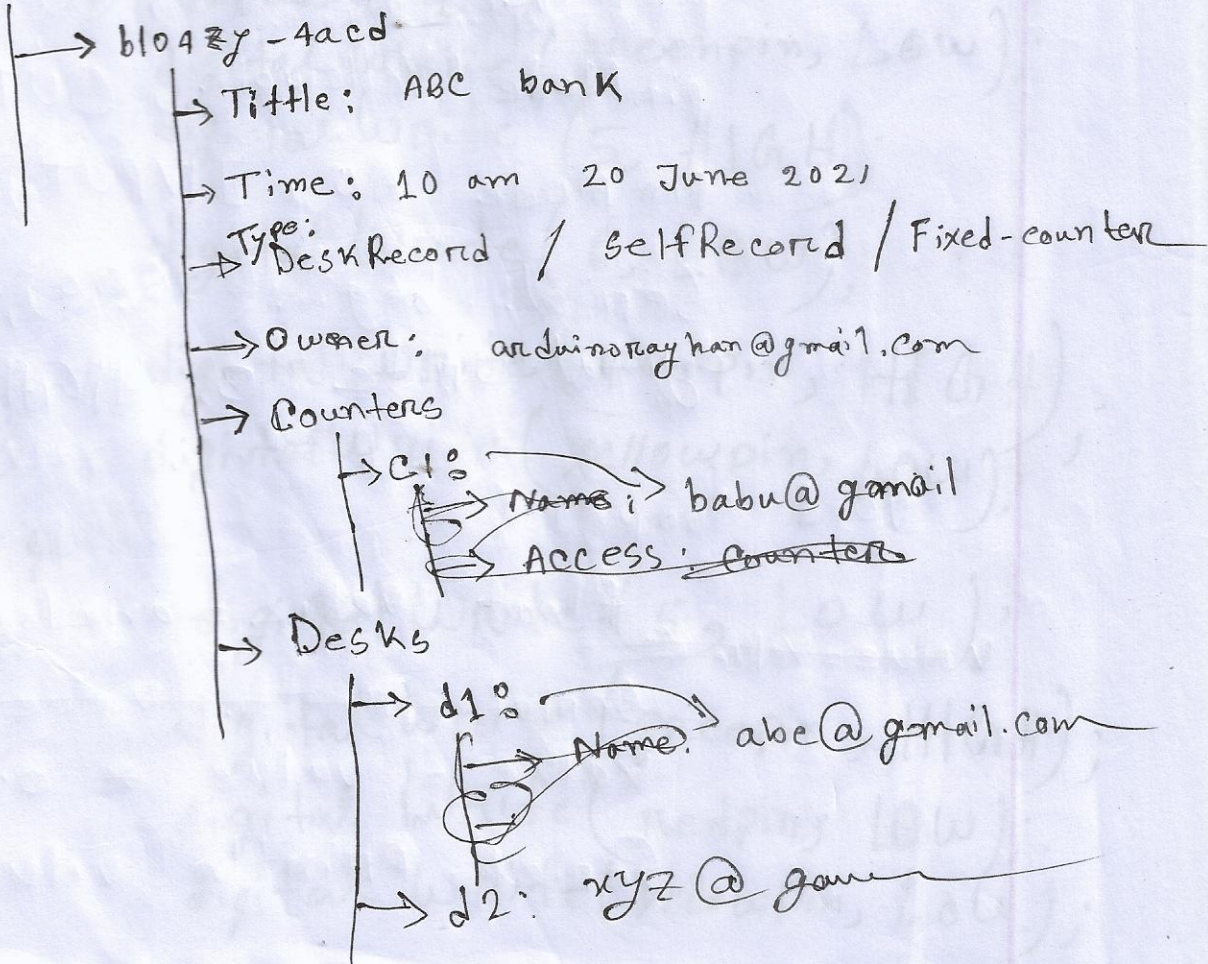 → bloazy-4acd
→ Tittle: ABC bank
→ Time: 10 am 20 June 2021
→ Type: DeskRecord / SelfRecord / Fixed-counter
→ Owner: arduinorayhan@gmail.com
→ Counters
→ C1:
→ Name: → babu@gmail
→ Access: Counter
→ Desks
→ d1:
→ Name: abc@gmail.com
→ d2: xyz@